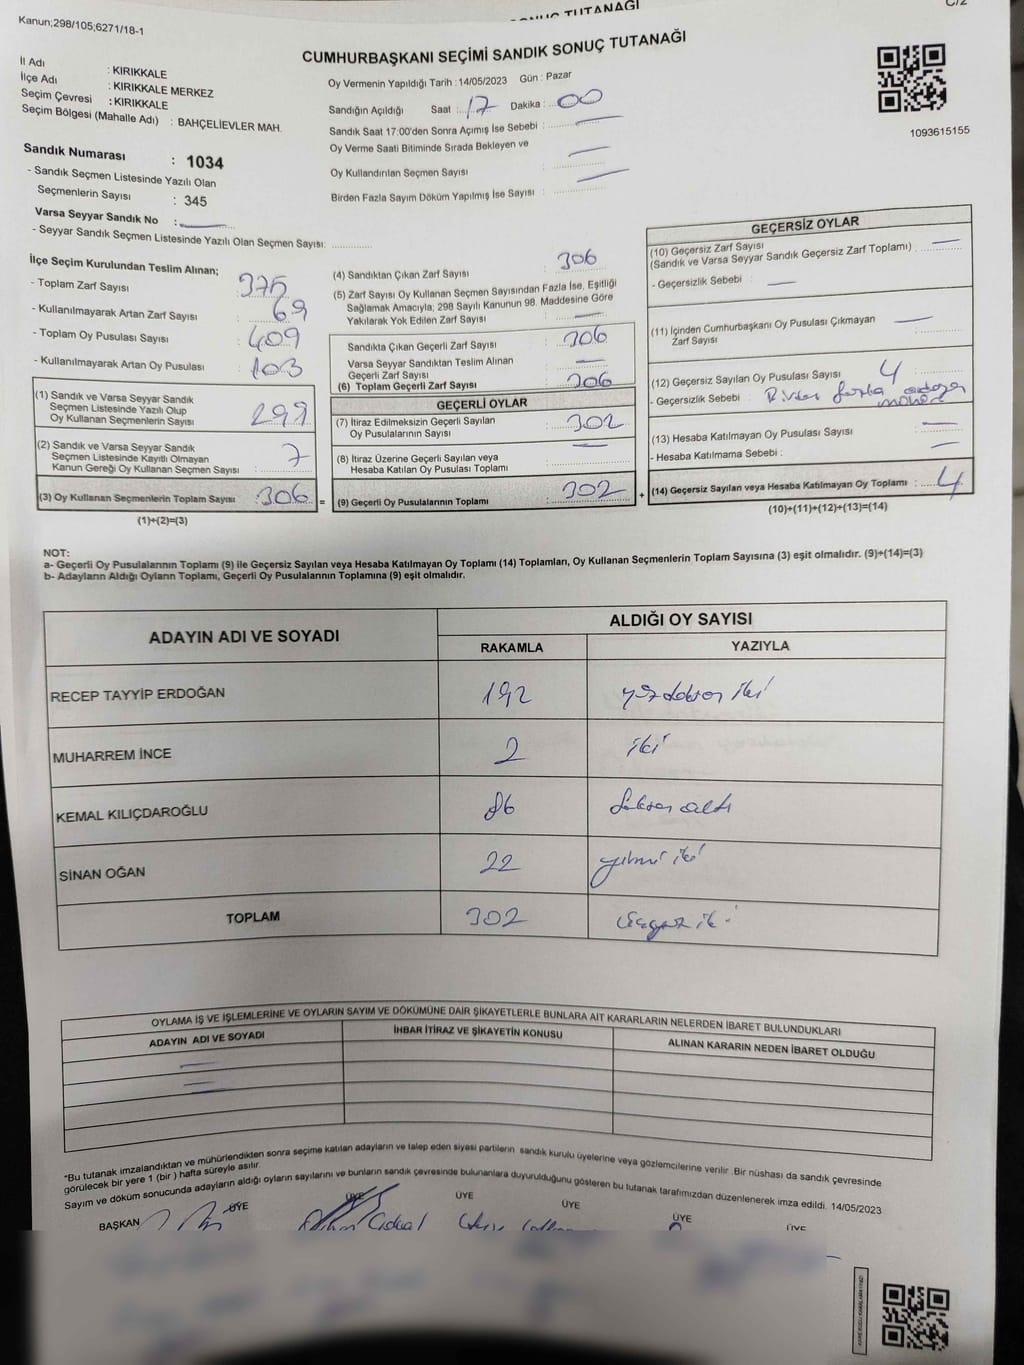 Kanun;298/105;6271/18-1
SONUÇ TUTANAĞI
C/2
CUMHURBAŞKANI SEÇİMİ SANDIK SONUÇ TUTANAĞI
İl Adı : KIRIKKALE
İlçe Adı : KIRIKKALE MERKEZ
Seçim Çevresi : KIRIKKALE
Seçim Bölgesi (Mahalle Adı) : BAHÇELİEVLER MAH.
Sandık Numarası : 1034
- Sandık Seçmen Listesinde Yazılı Olan
Seçmenlerin Sayısı : 345
Varsa Seyyar Sandık No :
- Seyyar Sandık Seçmen Listesinde Yazılı Olan Seçmen Sayısı:
Oy Vermenin Yapıldığı Tarih : 14/05/2023 Gün : Pazar
Sandığın Açıldığı Saat : 17 Dakika : 00
Sandık Saat 17:00'den Sonra Açımış İse Sebebi :
Oy Verme Saati Bitiminde Sırada Bekleyen ve
Oy Kullandırılan Seçmen Sayısı :
Birden Fazla Sayım Döküm Yapılmış İse Sayısı :
1093615155
İlçe Seçim Kurulundan Teslim Alınan;
- Toplam Zarf Sayısı : 375
- Kullanılmayarak Artan Zarf Sayısı : 69
- Toplam Oy Pusulası Sayısı : 409
- Kullanılmayarak Artan Oy Pusulası : 103
(1) Sandık ve Varsa Seyyar Sandık
Seçmen Listesinde Yazılı Olup
Oy Kullanan Seçmenlerin Sayısı : 299
(2) Sandık ve Varsa Seyyar Sandık
Seçmen Listesinde Kayıtlı Olmayan
Kanun Gereği Oy Kullanan Seçmen Sayısı : 7
(3) Oy Kullanan Seçmenlerin Toplam Sayısı : 306 =
(1)+(2)=(3)
(4) Sandıktan Çıkan Zarf Sayısı : 306
(5) Zarf Sayısı Oy Kullanan Seçmen Sayısından Fazla İse, Eşitliği
Sağlamak Amacıyla; 298 Sayılı Kanunun 98. Maddesine Göre
Yakılarak Yok Edilen Zarf Sayısı :
Sandıkta Çıkan Geçerli Zarf Sayısı : 306
Varsa Seyyar Sandıktan Teslim Alınan
Geçerli Zarf Sayısı :
(6) Toplam Geçerli Zarf Sayısı : 306
GEÇERLİ OYLAR
(7) İtiraz Edilmeksizin Geçerli Sayılan
Oy Pusulalarının Sayısı : 302
(8) İtiraz Üzerine Geçerli Sayılan veya
Hesaba Katılan Oy Pusulası Toplamı :
(9) Geçerli Oy Pusulalarının Toplamı : 302 +
GEÇERSİZ OYLAR
(10) Geçersiz Zarf Sayısı
(Sandık ve Varsa Seyyar Sandık Geçersiz Zarf Toplamı) :
- Geçersizlik Sebebi :
(11) İçinden Cumhurbaşkanı Oy Pusulası Çıkmayan
Zarf Sayısı :
(12) Geçersiz Sayılan Oy Pusulası Sayısı : 4
- Geçersizlik Sebebi : Birden fazla adaya
mühür
(13) Hesaba Katılmayan Oy Pusulası Sayısı :
- Hesaba Katılmama Sebebi :
(14) Geçersiz Sayılan veya Hesaba Katılmayan Oy Toplamı : 4
(10)+(11)+(12)+(13)=(14)
NOT:
a- Geçerli Oy Pusulalarının Toplamı (9) ile Geçersiz Sayılan veya Hesaba Katılmayan Oy Toplamı (14) Toplamları, Oy Kullanan Seçmenlerin Toplam Sayısına (3) eşit olmalıdır. (9)+(14)=(3)
b- Adayların Aldığı Oyların Toplamı, Geçerli Oy Pusulalarının Toplamına (9) eşit olmalıdır.
ADAYIN ADI VE SOYADI
ALDIĞI OY SAYISI
RAKAMLA YAZIYLA
RECEP TAYYİP ERDOĞAN 192 yüzdoksan iki
MUHARREM İNCE 2 iki
KEMAL KILIÇDAROĞLU 86 Seksen altı
SİNAN OĞAN 22 yirmi iki
TOPLAM 302 üçyüz iki
OYLAMA İŞ VE İŞLEMLERİNE VE OYLARIN SAYIM VE DÖKÜMÜNE DAİR ŞİKAYETLERLE BUNLARA AİT KARARLARIN NELERDEN İBARET BULUNDUKLARI
ADAYIN ADI VE SOYADI İHBAR İTİRAZ VE ŞİKAYETİN KONUSU ALINAN KARARIN NEDEN İBARET OLDUĞU
"Bu tutanak imzalandıktan ve mühürlendikten sonra seçime katılan adayların ve talep eden siyasi partilerin sandık kurulu üyelerine veya gözlemcilerine verilir .Bir nüshası da sandık çevresinde
görülecek bir yere 1 (bir ) hafta süreyle asılır.
Sayım ve döküm sonucunda adayların aldığı oyların sayılarını ve bunların sandık çevresinde bulunanlara duyurulduğunu gösteren bu tutanak tarafımızdan düzenlenerek imza edildi. 14/05/2023
BAŞKAN ÜYE ÜYE ÜYE ÜYE ÜYE ÜYE